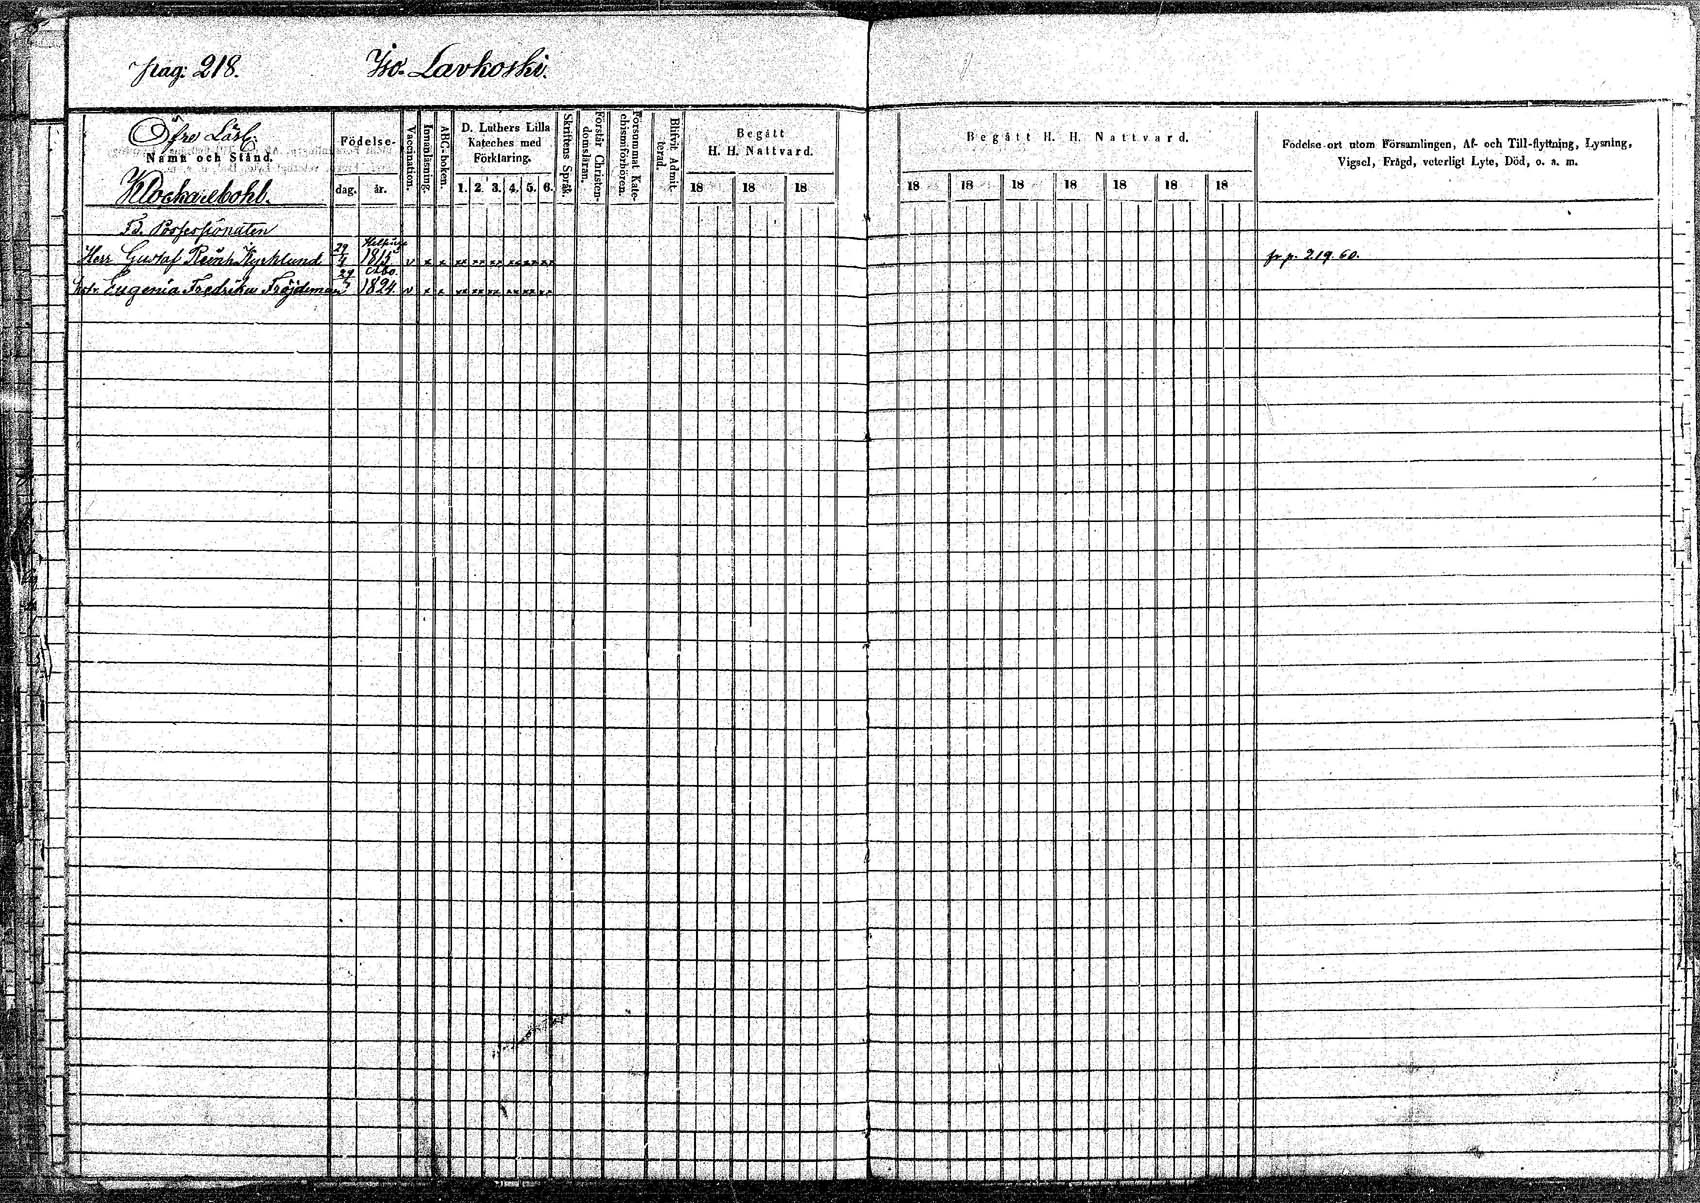 pag: 218. Iso-Lavkoski.
Öfre Läsl.
Namn och Stånd.
Klockarebohl.
Födelse-
dag. år.
Vaccination.
Innanläsning.
ABC-boken.
D. Luthers Lilla
Kateches med
Förklaring.
1. 2. 3. 4. 5. 6.
Skriftens Språk.
Förstår Christen-
domsläran.
Försummat Kate-
chismiförhören.
Blifvit Admit-
terad.
Begått
H. H. Nattvard.
18 18 18
Begått H. H. Nattvard.
18 18 18 18 18 18 18
Födelse-ort utom Församlingen, Af- och Till-flyttning, Lysning,
Vigsel, Frägd, veterligt Lyte, Död, o. s. m.
Possessionaten
Herr Gustaf Reinh. Kyrklund 1815 v x x xx xx xx xx xx xx fr. p. 219. 60.
Åbo.
Eugenia Fredrika Fröjdman 1824. v x x xx xx xx xx xx xx